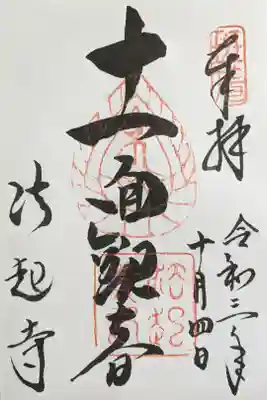 奉拝
令和二年
十月四日
十一面觀音
法起寺